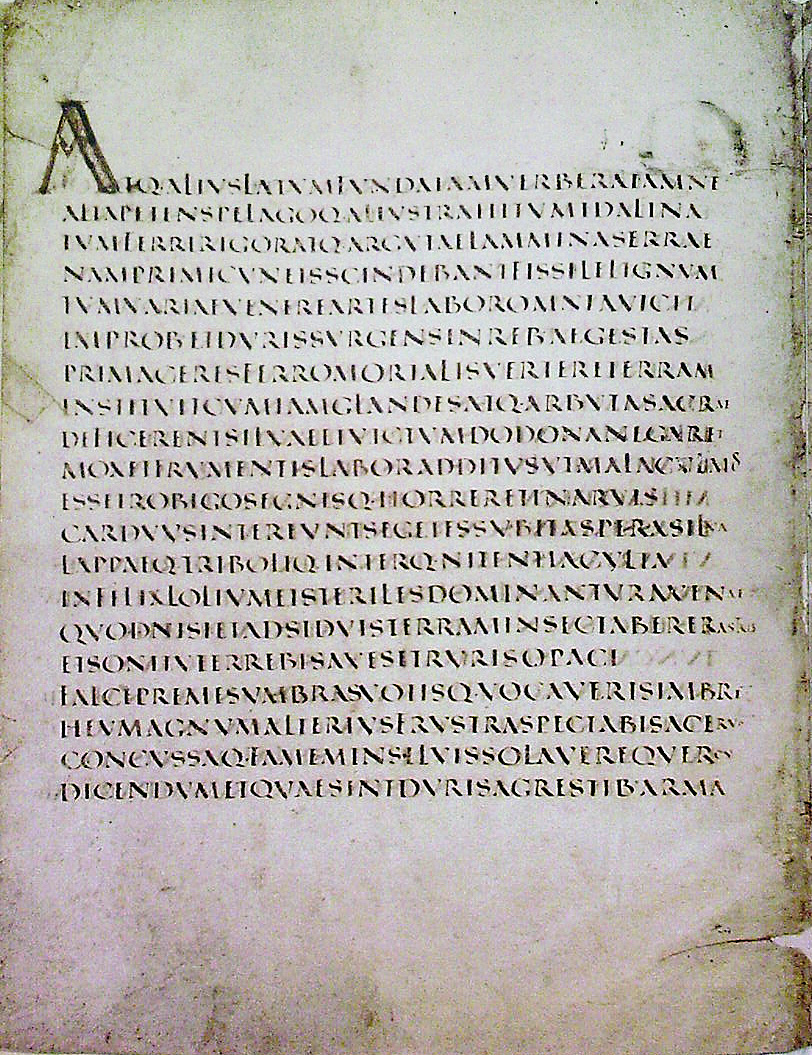 ATQALIVSLATVMFVNDAIAMVERBERATAMNE
ALTAPETENSPELAGOQALIVSTRAHITVMIDALINA
TVMFERRIRIGORATQARGVTAELAMMINASERRAE
NAMPRIMICVNEISSCINDEBANTFISSILELIGNVM
TVMVARIAEVENEREARTESLABOROMNIAVICIT
IMPROBETDVRISSVRGENSINREBAEGESTAS
PRIMACERESFERROMORTALISVERTERETERRAM
INSTITVITCVMIAMGLANDESATQARBVTASACRAE
DEFICERENTSILVAEETVICTVMDODONANEGARET
MOXETFRVMENTISLABORADDITVSVTMALACVLMOS
ESSETROBIGOSEGNISQ·HORRERETINARVIS
CARDVVSINTEREVNTSEGETESSVBITASPERASILVA
LAPPAEQTRIBOLIQ·INTERQ·NITENTIACVLTA
INFELIXLOLIVMETSTERILESDOMINANTVRAVENAE
QVODNISIETADSIDVISTERRAMINSECTABERERASTRIS
ETSONITVTERREBISAVESETRVRISOPACI
FALCEPREMESVMBRASVOTISQ·VOCAVERISIMBRE
HEVMAGNVMALTERIVSFRVSTRASPECTABISACERVO
CONCVSSAQ·FAMEMINSILVISSOLAVEREQVERCV
DICENDVMETQVAESINTDVRISAGRESTIBARMA